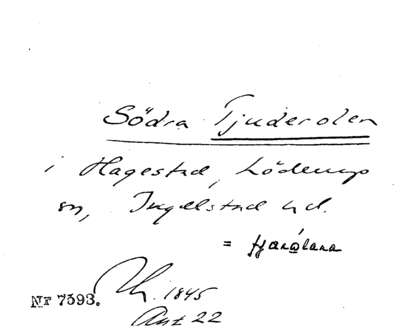 Södra Tjuderolen
i Hagestad, Löderups
sn, Ingelstad hd.
=
Nr 7593. 1845
Ant 22